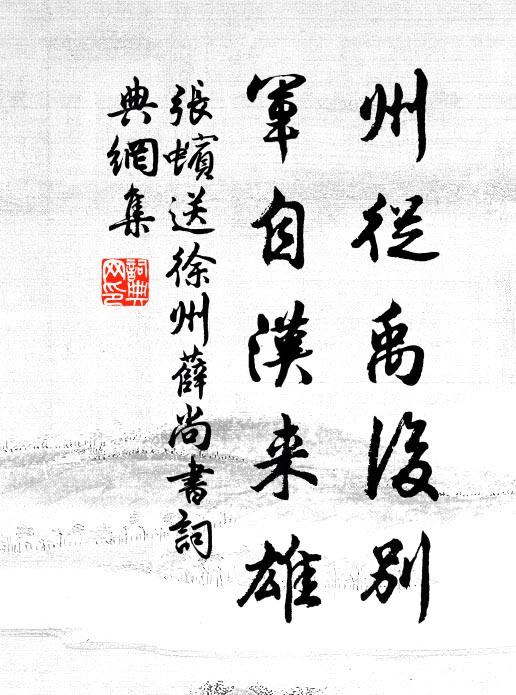 州從禹後別
軍自漢来雄
張蠙送徐州薛尚書詞
典網集
詞典
网印